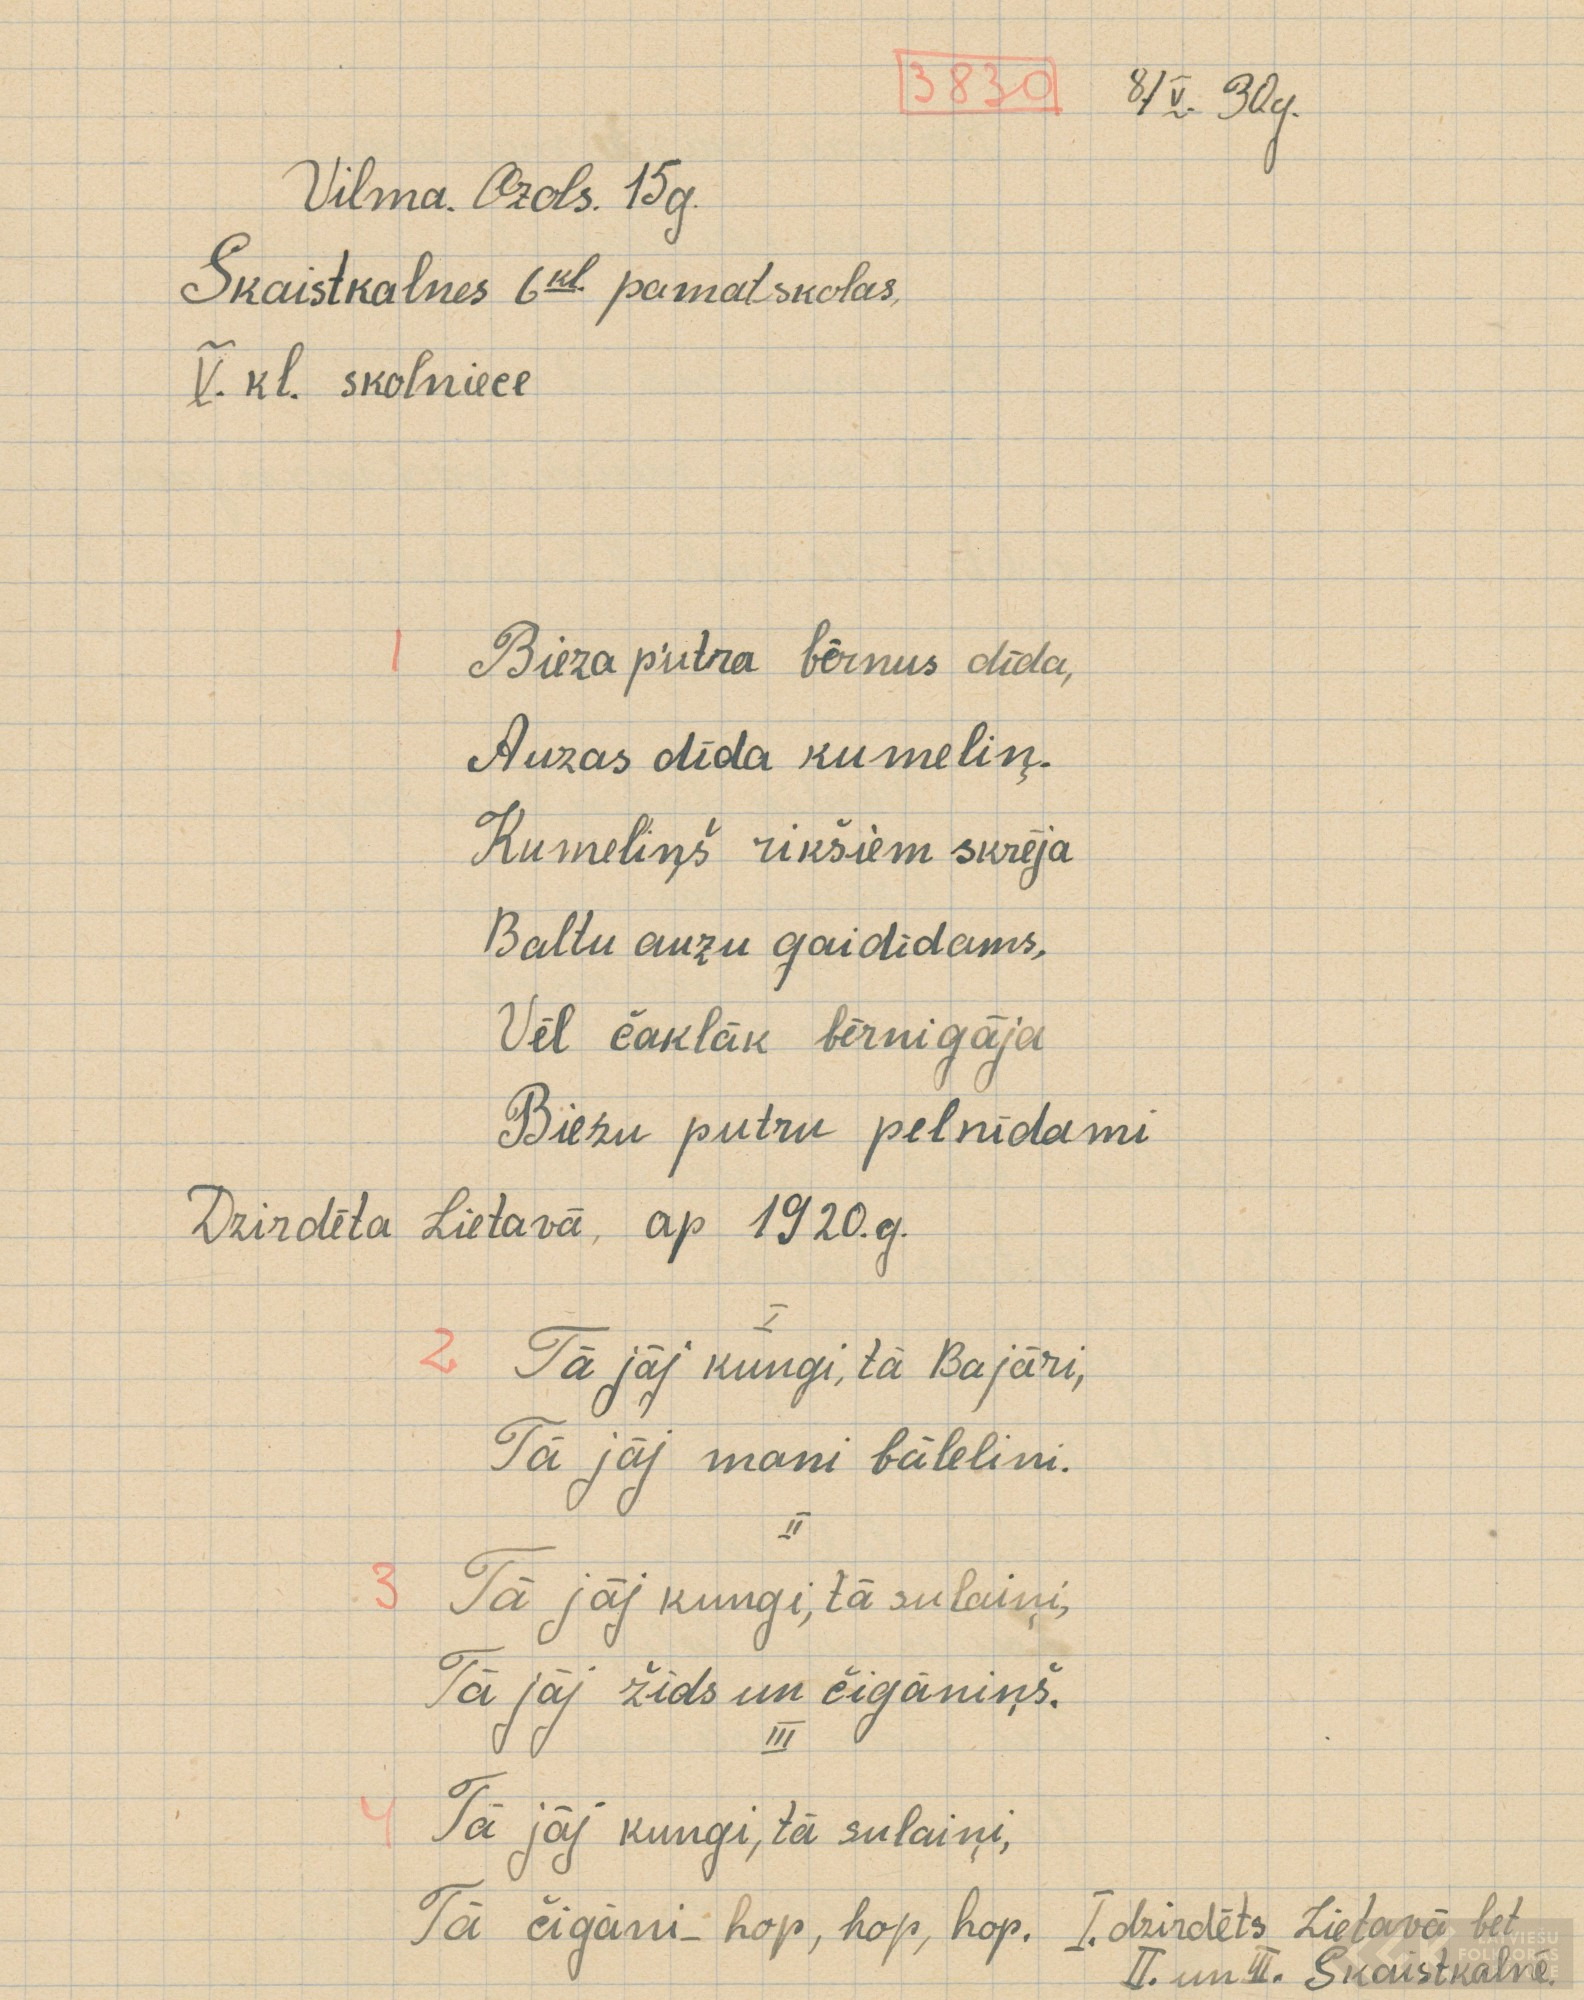 3830 8/V. 30g.
Vilma. Ozols. 15g.
Skaistkalnes 6kl. pamatskolas,
V. kl. skolniece
1 Bieza putra bērnus dīda,
Auzas dīda kumeliņ.
Kumeliņš rikšiem skrēja
Baltu auzu gaidīdams,
Vēl čaklāk bērni gāja
Biezu putru pelnīdami
Dzirdēta Lietavā, ap 1920.g.
I
2 Tā jāj kungi, tā Bajāri,
Tā jāj mani bālelini.
II
3 Tā jāj kungi, tā sulaiņi,
Tā jāj žids un čigāniņš.
III
4 Tā jāj kungi, tā sulaiņi,
Tā čigāni - hop, hop, hop. I. dzirdēts Lietavā bet
II. un III. Skaistkalnē.
LATVIEŠU
FOLKLORAS